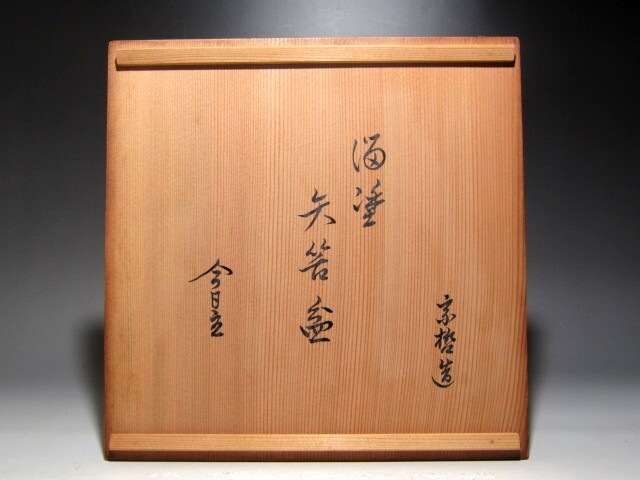 宗哲造
溜塗
矢筈盆
今日庵